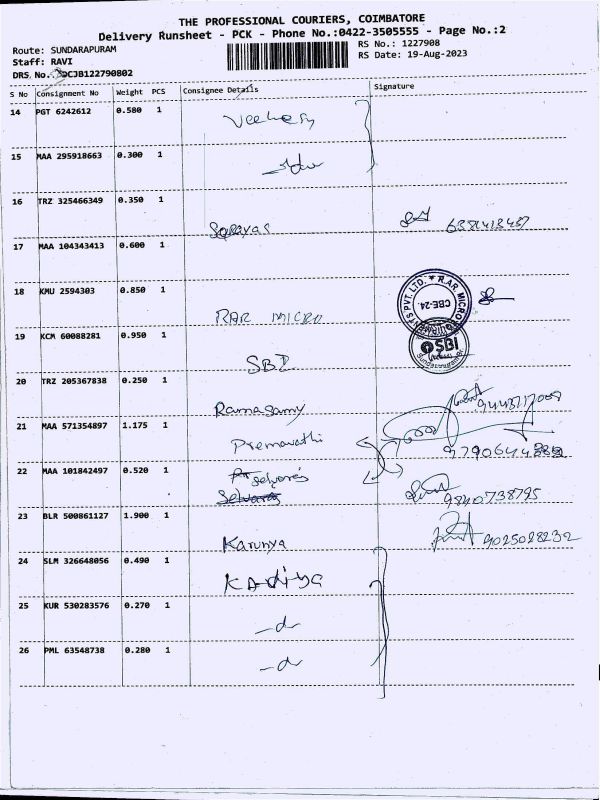 THE PROFESSIONAL COURIERS, COIMBATORE
Delivery Runsheet - PCK - Phone No.:0422-3505555 - Page No.:2
Route: SUNDARAPURAM
RS No.: 1227908
Staff: RAVI
RS Date: 19-Aug-2023
DRS No. DCJB122790802
S No Consignment No Weight PCS Consignee Details Signature
14 PGT 6242612 0.580 1
15 MAA 295918663 0.300 1
16 TRZ 325466349 0.350 1
17 MAA 104343413 0.600 1
18 KMU 2594303 0.850 1 RAR MICRO
19 KCM 60088281 0.950 1 SBI
20 TRZ 205367838 0.250 1 Ramasamy
21 MAA 571354897 1.175 1 Premavathi
22 MAA 101842497 0.520 1 Selvaraj
9840738795
23 BLR 500861127 1.900 1 Karunya 9025028232
24 SLM 326648056 0.490 1
25 KUR 530283576 0.270 1 -do
26 PML 63548738 0.280 1 -do
CBE-24
SBI